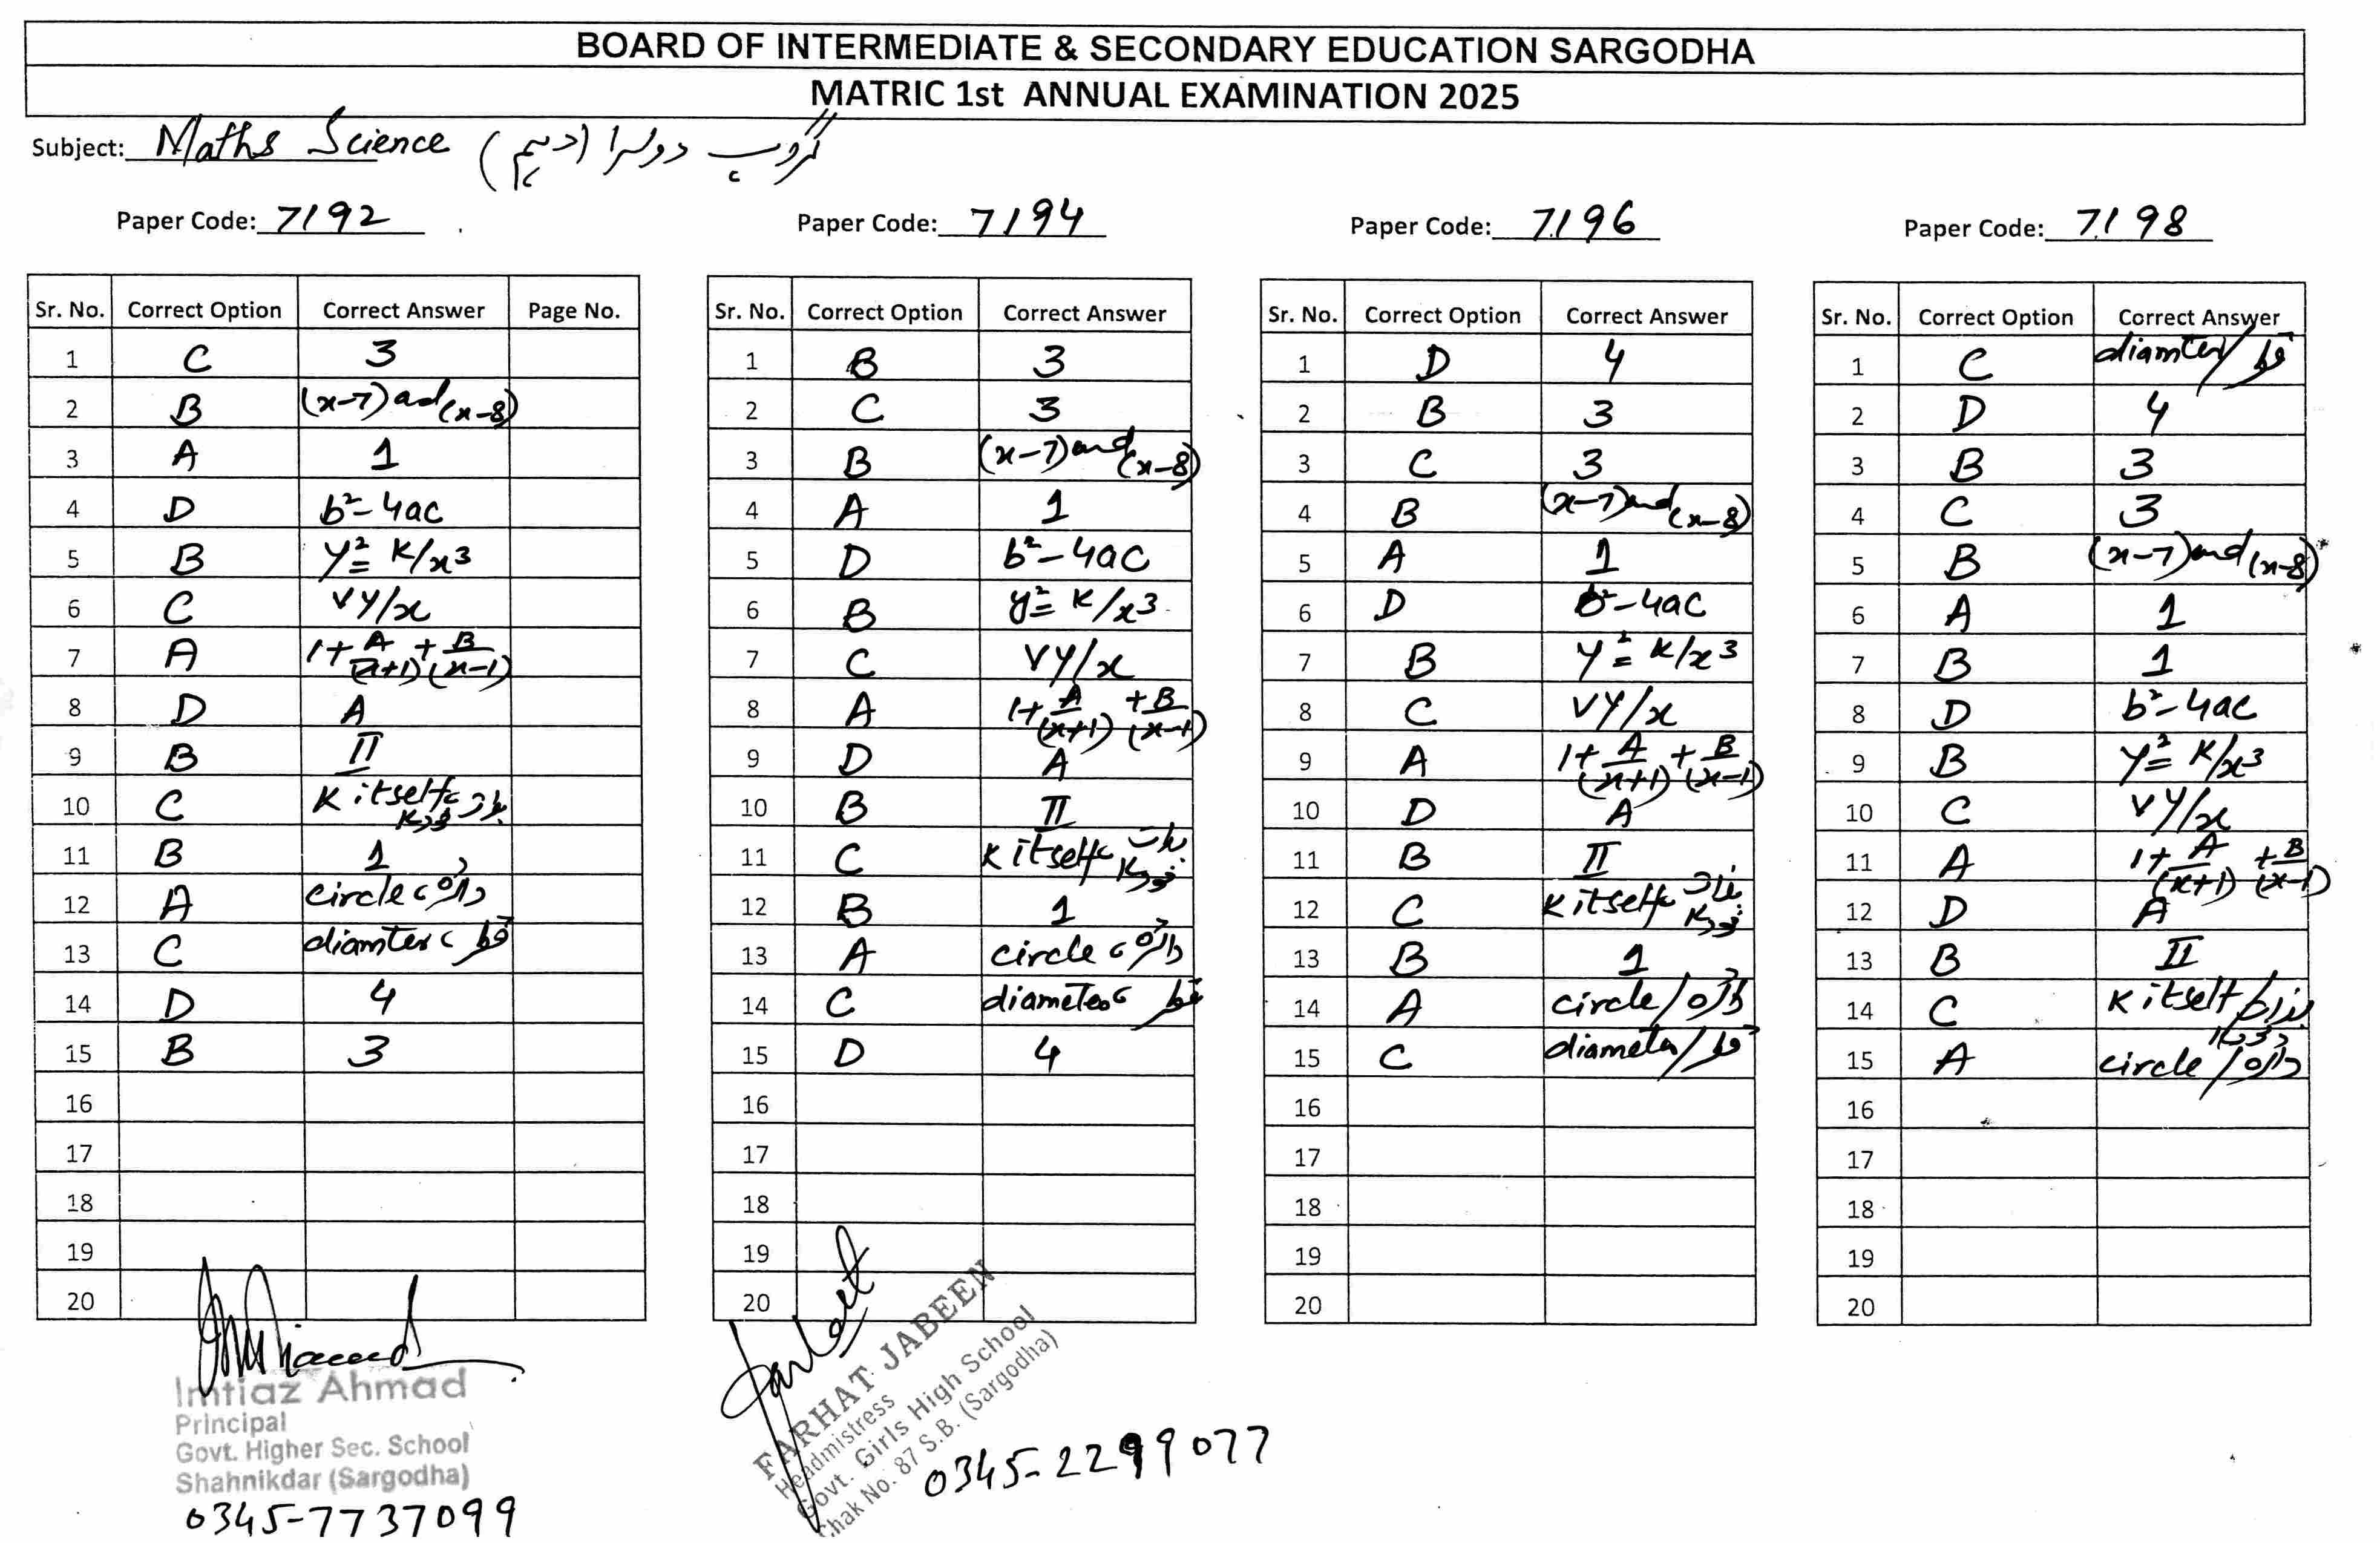 BOARD OF INTERMEDIATE & SECONDARY EDUCATION SARGODHA
MATRIC 1st ANNUAL EXAMINATION 2025
Subject: Maths Science (دہم) گروپ دوسرا
Paper Code: 7192
Sr. No. Correct Option Correct Answer Page No.
1 C 3
2 B (x-7) ad (x-8)
3 A 1
4 D b²-4ac
5 B y²= K/x3
6 C vy/x
7 A 1+ A/(x+1) + B/(x-1)
8 D A
9 B II
10 C K itself، بذات خود K
11 B 1
12 A circle، دائرہ
13 C diamter، قطر
14 D 4
15 B 3
16
17
18
19
20
Paper Code: 7194
Sr. No. Correct Option Correct Answer
1 B 3
2 C 3
3 B (x-7) and (x-8)
4 A 1
5 D b²-4ac
6 B y²= K/x3
7 C vy/x
8 A 1+ A/(x+1) + B/(x-1)
9 D A
10 B II
11 C K itself، بذات خود K
12 B 1
13 A circle، دائرہ
14 C diameter، قطر
15 D 4
16
17
18
19
20
Paper Code: 7196
Sr. No. Correct Option Correct Answer
1 D 4
2 B 3
3 C 3
4 B (x-7) and (x-8)
5 A 1
6 D b²-4ac
7 B y²= K/x3
8 C vy/x
9 A 1+ A/(x+1) + B/(x-1)
10 D A
11 B II
12 C K itself، بذات خود K
13 B 1
14 A circle/دائرہ
15 C diameter/قطر
16
17
18
19
20
Paper Code: 7198
Sr. No. Correct Option Correct Answer
1 C diamter/قطر
2 D 4
3 B 3
4 C 3
5 B (x-7) and (x-8)
6 A 1
7 B 1
8 D b²-4ac
9 B y²= K/x3
10 C vy/x
11 A 1+ A/(x+1) + B/(x-1)
12 D A
13 B II
14 C K itself/بذات خود K
15 A circle/دائرہ
16
17
18
19
20
Imtiaz Ahmad
Principal
Govt. Higher Sec. School
Shahnikdar (Sargodha)
0345-7737099
FARHAT JABEEN
Headmistress
Govt. Girls High School
Chak No. 87 S.B. (Sargodha)
0345-2299077